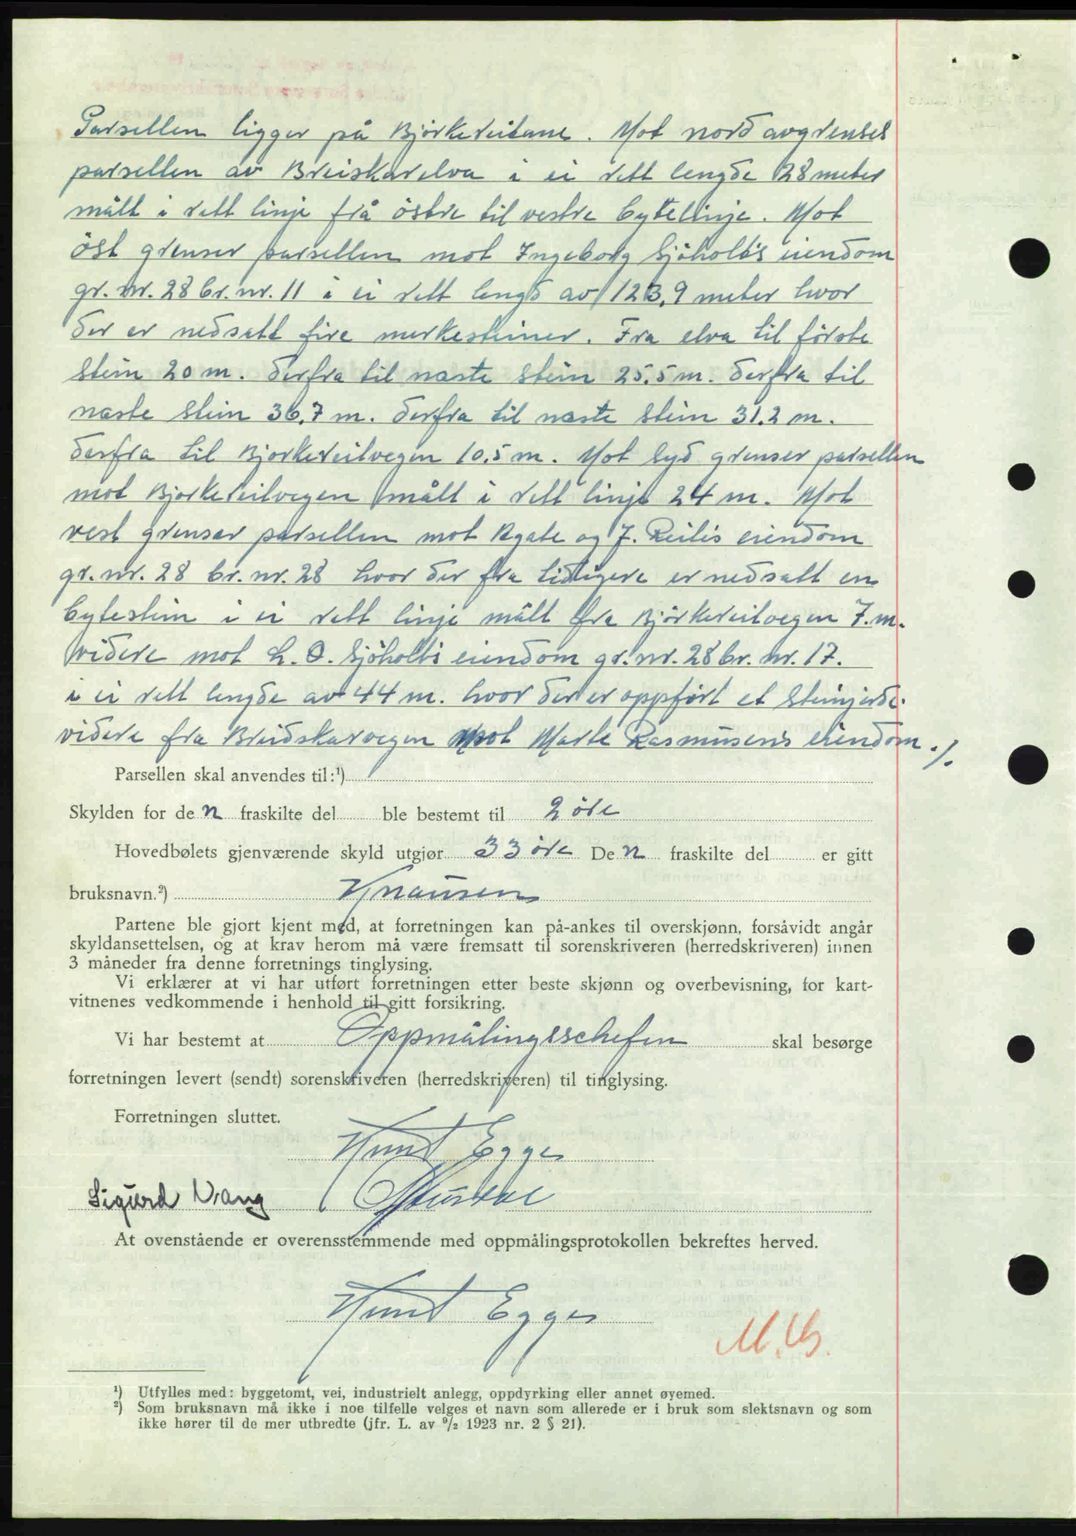 Parsellen ligger på Bjørkereitane. Mot nord avgrenses
parsellen av Breiskarelva i ei rett lengde 28 meter
målt i rett linje frå östre til vestre bytelinje. Mot
öst grenser parsellen mot Ingeborg Sjöholt's eiendom
gr. nr. 28 br. nr. 11 i ei rett lengd av 123,9 meter hvor
der er nedsatt fire merkesteiner. Fra elva til förste
stein 20 m. derfra til næste stein 25.5 m. derfra til
næste stein 36,7 m. derfra til næste stein 31.2 m.
derfra til Bjørkereitvegen 10.5 m. Mot syd grenser parsellen
mot Bjørkereitvegen målt i rett linje 24 m. Mot
vest grenser parsellen mot Agate og J. Reitis eiendom
gr. nr. 28 br. nr. 28 hvor der fra tidligere er nedsatt en
bytestein i ei rett linje målt fra Bjørkereitvegen 7. m.
videre mot L. O. Sjöholts eiendom gr. nr. 28 br. nr. 17.
i ei rett lengde av 44 m. hvor der er oppført et steinjerde.
videre fra Breidskarvegen mot Marte Rasmusens eiendom ./.
Parsellen skal anvendes til:¹)
Skylden for de n fraskilte del ble bestemt til 2 öre
Hovedbølets gjenværende skyld utgjør 33 öre De n fraskilte del er gitt
bruksnavn.²) Knausen
Partene ble gjort kjent med, at forretningen kan på-ankes til overskjønn, forsåvidt angår
skyldansettelsen, og at krav herom må være fremsatt til sorenskriveren (herredskriveren) innen
3 måneder fra denne forretnings tinglysing.
Vi erklærer at vi har utført forretningen etter beste skjønn og overbevisning, for kart-
vitnenes vedkommende i henhold til gitt forsikring.
Vi har bestemt at Oppmålingsschefen skal besørge
forretningen levert (sendt) sorenskriveren (herredskriveren) til tinglysing.
Forretningen sluttet.
Knut Egges
Sigurd Vrang
At ovenstående er overensstemmende med oppmålingsprotokollen bekreftes herved.
Knut Egges
¹) Utfylles med: byggetomt, vei, industrielt anlegg, oppdyrking eller annet øyemed.
²) Som bruksnavn må ikke i noe tilfelle velges et navn som allerede er i bruk som slektsnavn og som
ikke hører til de mer utbredte (jfr. L. av ⁹/₂ 1923 nr. 2 § 21).